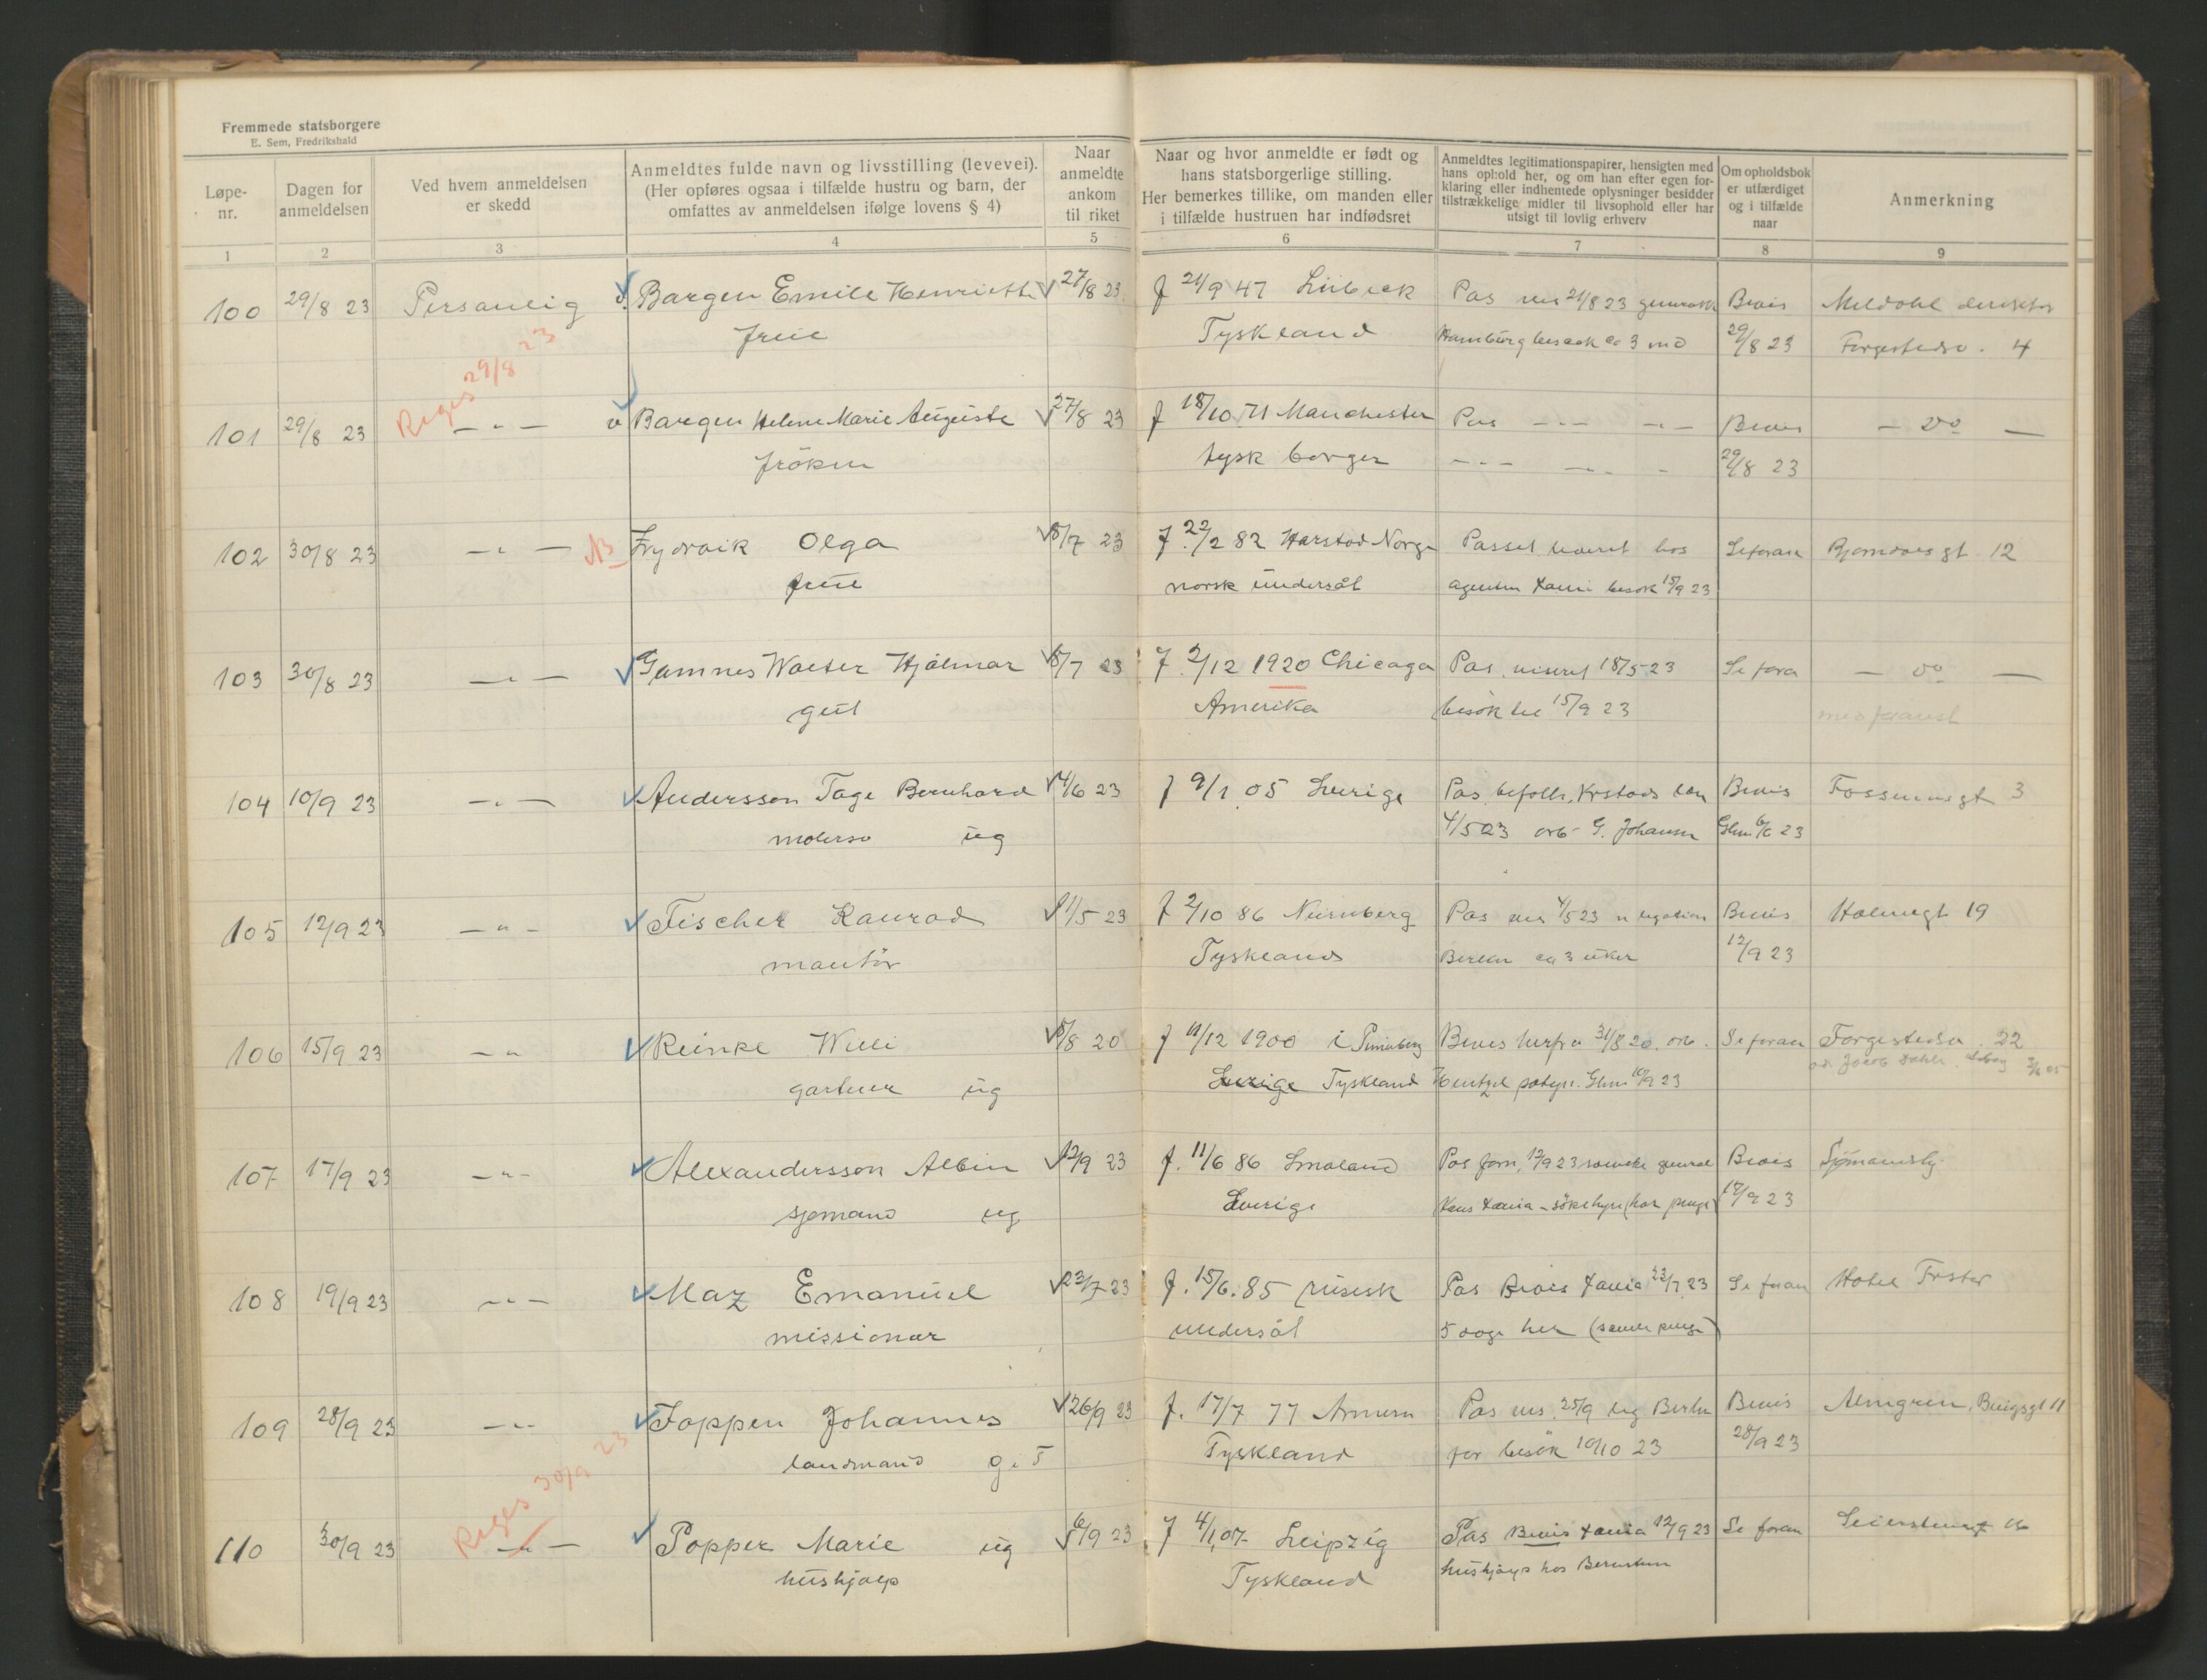 Fremmede statsborgere
E. Sem, Fredrikshald
Løpe-nr.
Dagen for anmeldelsen
Ved hvem anmeldelsen er skedd
Anmeldtes fulde navn og livsstilling (levevei).
(Her opføres ogsaa i tilfælde hustru og barn, der
omfattes av anmeldelsen ifølge lovens § 4)
Naar anmeldte ankom til riket
Naar og hvor anmeldte er født og
hans statsborgerlige stilling.
Her bemerkes tillike, om manden eller
i tilfælde hustruen har indfødsret
Anmeldtes legitimationspapirer, hensigten med
hans ophold her, og om han efter egen for-
klaring eller indhentede oplysninger besidder
tilstrækkelige midler til livsophold eller har
utsigt til lovlig erhverv
Om opholdsbok
er utfærdiget
og i tilfælde
naar
Anmerkning
1 2 3 4 5 6 7 8 9
100 29/8 23 Personlig v. Bargen Emile Henriette 27/8 23 f 21/9 47 Lübeck Pas vis 21/8 23 Bevis Meldahl
frue Tyskland Hamburg besøk ca 3 md 29/8 23 4
Reges 29/8 23
101 29/8 23 v Bargen Helene Marie Auguste 27/8 23 f 18/10 71 Manchester Pas Bevis - do -
fröken tysk borger 29/8 23
102 30/8 23 NB Frydvik Olga 8/7 23 f. 22/2 82 Harstad Norge Passet leveret hos Se foran 12
frue norsk undersåt agenten Xania besøk 15/9 23
103 30/8 23 Gamnes Walter Hjalmar 8/7 23 f. 2/12 1920 Chicago Pas viseret 18/5 23 Se fora - do -
gut Amerika besøk til 15/9 23
104 10/9 23 Andersson Tage Bernhard 4/6 23 f 9/1 05 Sverige Pas Bevis 3
molersv ug 4/5 23 arb G. Johansen Glm 6/6 23
105 12/9 23 Fischer Konrad 11/5 23 f 2/10 86 Nürnberg Pas vis 4/5 23 n legation Bevis Holmegt 19
montör Tyskland Berlin ca 3 uker 12/9 23
106 15/9 23 Reinke Willi 8/8 20 f 11/12 1900 i Pinneberg Bevis herfra 31/8 20. arb. Se foran 22
gartner ug Sverige Tyskland Glm 10/9 23
107 17/9 23 Alexandersson Albin 12/9 23 f. 11/6 86 Småland Pas forn. 12/9 23 svenske general Bevis
sjømand ug Sverige Kons Xania - söke hyre (har penge) 17/9 23
108 19/9 23 Maz Emanuel 23/7 23 f. 15/6. 85 russisk Pas Bevis Xania 23/7 23 Se foran Hotel
missionær undersåt 5 dage her
109 28/9 23 Foppen Johannes 26/9 23 f. 17/7 77 Pas vis. 25/9 leg Berlin Bevis Almgren,
landmand g. i T Tyskland for besök 10/10 23 28/9 23
Reges 30/9 23
110 30/9 23 Popper Marie ug 6/9 23 f 4/1 07 Leipzig Pas Bevis Xania 12/9 23 Se foran
hushjælp Tyskland hushjælp hos